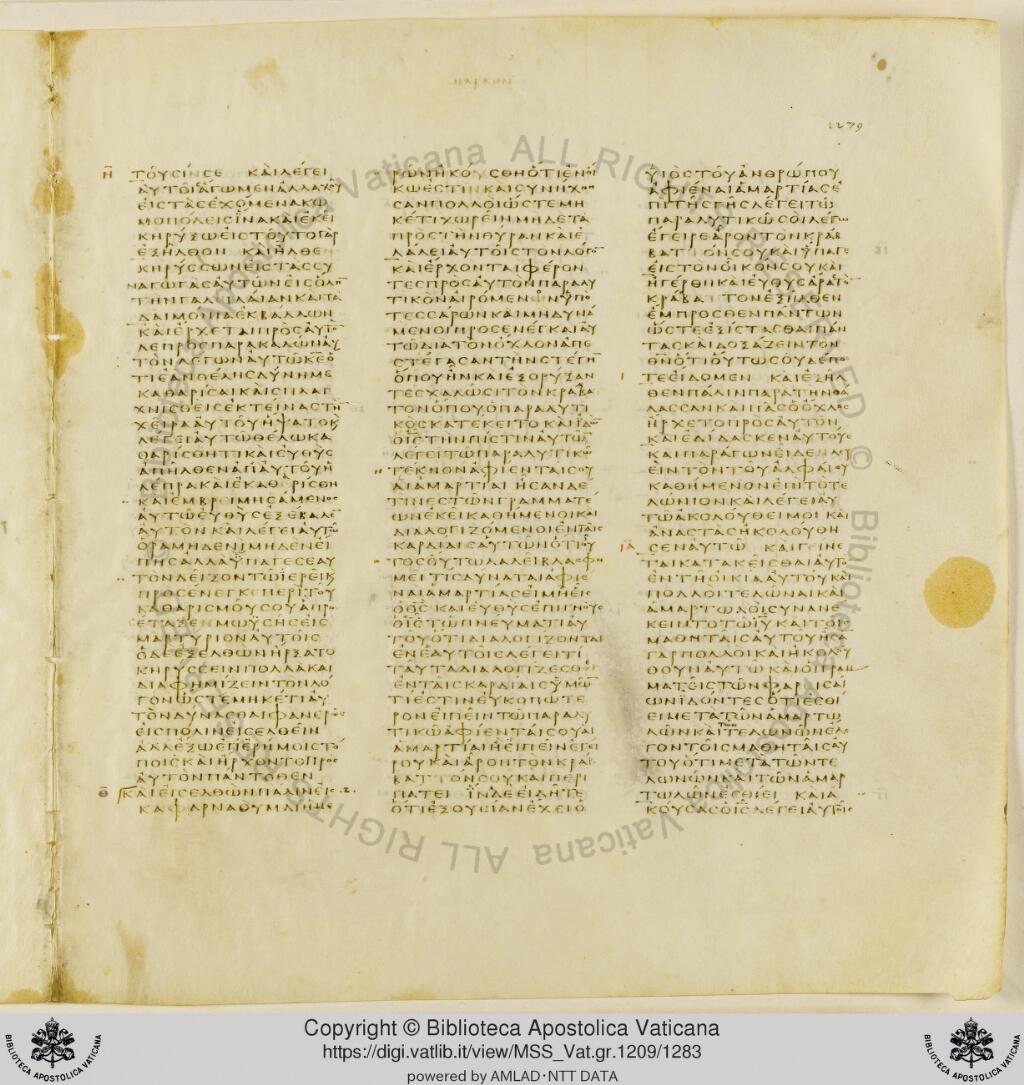 1279
Η ΤΟΥΣΙΝ ΣΕ ΚΑΙ ΛΕΓΕΙ
ΑΥΤΟΙΣ ΑΓΩΜΕΝ ΑΛΛΑΧΟΥ
ΕΙΣ ΤΑΣ ΕΧΟΜΕΝΑΣ ΚΩ
ΜΟΠΟΛΕΙΣ ΙΝΑ ΚΑΙ ΕΚΕΙ
ΚΗΡΥΞΩ ΕΙΣ ΤΟΥΤΟ ΓΑΡ
ΕΞΗΛΘΟΝ ΚΑΙ ΗΛΘΕ
ΚΗΡΥΣΣΩΝ ΕΙΣ ΤΑΣ ΣΥ
ΝΑΓΩΓΑΣ ΑΥΤΩΝ ΕΙΣ ΟΛΗ
ΤΗΝ ΓΑΛΙΛΑΙΑΝ ΚΑΙ ΤΑ
ΔΑΙΜΟΝΙΑ ΕΚΒΑΛΛΩΝ
ΚΑΙ ΕΡΧΕΤΑΙ ΠΡΟΣ ΑΥΤΟ
ΛΕΠΡΟΣ ΠΑΡΑΚΑΛΩΝ ΑΥ
ΤΟΝ ΛΕΓΩΝ ΑΥΤΩ ΚΕ Ο
ΤΙ ΕΑΝ ΘΕΛΗΣ ΔΥΝΗ ΜΕ
ΚΑΘΑΡΙΣΑΙ ΚΑΙ ΣΠΛΑΓ
ΧΝΙΣΘΕΙΣ ΕΚΤΕΙΝΑΣ ΤΗ
ΧΕΙΡΑ ΑΥΤΟΥ ΗΨΑΤΟ Κ
ΛΕΓΕΙ ΑΥΤΩ ΘΕΛΩ ΚΑ
ΘΑΡΙΣΘΗΤΙ ΚΑΙ ΕΥΘΥΣ
ΑΠΗΛΘΕΝ ΑΠ ΑΥΤΟΥ Η
ΛΕΠΡΑ ΚΑΙ ΕΚΑΘΕΡΙΣΘΗ
ΚΑΙ ΕΜΒΡΕΙΜΗΣΑΜΕΝΟΣ
ΑΥΤΩ ΕΥΘΥΣ ΕΞΕΒΑΛΕ
ΑΥΤΟΝ ΚΑΙ ΛΕΓΕΙ ΑΥΤΩ
ΟΡΑ ΜΗΔΕΝΙ ΜΗΔΕΝ ΕΙ
ΠΗΣ ΑΛΛΑ ΥΠΑΓΕ ΣΕΑΥ
ΤΟΝ ΔΕΙΞΟΝ ΤΩ ΙΕΡΕΙ Κ
ΠΡΟΣΕΝΕΓΚΕ ΠΕΡΙ ΤΟΥ
ΚΑΘΑΡΙΣΜΟΥ ΣΟΥ Α ΠΡΟ
ΣΕΤΑΞΕΝ ΜΩΥΣΗΣ ΕΙΣ
ΜΑΡΤΥΡΙΟΝ ΑΥΤΟΙΣ
Ο ΔΕ ΕΞΕΛΘΩΝ ΗΡΞΑΤΟ
ΚΗΡΥΣΣΕΙΝ ΠΟΛΛΑ ΚΑΙ
ΔΙΑΦΗΜΙΖΕΙΝ ΤΟΝ ΛΟ
ΓΟΝ ΩΣΤΕ ΜΗΚΕΤΙ ΑΥ
ΤΟΝ ΔΥΝΑΣΘΑΙ ΦΑΝΕΡΩΣ
ΕΙΣ ΠΟΛΙΝ ΕΙΣΕΛΘΕΙΝ
ΑΛΛ ΕΞΩ ΕΠ ΕΡΗΜΟΙΣ ΤΟ
ΠΟΙΣ ΚΑΙ ΗΡΧΟΝΤΟ ΠΡΟΣ
ΑΥΤΟΝ ΠΑΝΤΟΘΕΝ
Θ ΚΑΙ ΕΙΣΕΛΘΩΝ ΠΑΛΙΝ ΕΙΣ 2
ΚΑΦΑΡΝΑΟΥΜ ΔΙ ΗΜΕ
ΡΩΝ ΗΚΟΥΣΘΗ ΟΤΙ ΕΝ ΟΙ
ΚΩ ΕΣΤΙΝ ΚΑΙ ΣΥΝΗΧΘΗ
ΣΑΝ ΠΟΛΛΟΙ ΩΣΤΕ ΜΗ
ΚΕΤΙ ΧΩΡΕΙΝ ΜΗΔΕ ΤΑ
ΠΡΟΣ ΤΗΝ ΘΥΡΑΝ ΚΑΙ Ε
ΛΑΛΕΙ ΑΥΤΟΙΣ ΤΟΝ ΛΟΓΟ
ΚΑΙ ΕΡΧΟΝΤΑΙ ΦΕΡΟΝ
ΤΕΣ ΠΡΟΣ ΑΥΤΟΝ ΠΑΡΑΛΥ
ΤΙΚΟΝ ΑΙΡΟΜΕΝΟΝ ΥΠΟ
ΤΕΣΣΑΡΩΝ ΚΑΙ ΜΗ ΔΥΝΑ
ΜΕΝΟΙ ΠΡΟΣΕΝΕΓΚΑΙ ΑΥ
ΤΩ ΔΙΑ ΤΟΝ ΟΧΛΟΝ ΑΠΕ
ΣΤΕΓΑΣΑΝ ΤΗΝ ΣΤΕΓΗ
ΟΠΟΥ ΗΝ ΚΑΙ ΕΞΟΡΥΞΑΝ
ΤΕΣ ΧΑΛΩΣΙ ΤΟΝ ΚΡΑΒΑΤ
ΤΟΝ ΟΠΟΥ Ο ΠΑΡΑΛΥΤΙ
ΚΟΣ ΚΑΤΕΚΕΙΤΟ ΚΑΙ ΙΔΩ
Ο ΙΣ ΤΗΝ ΠΙΣΤΙΝ ΑΥΤΩ
ΛΕΓΕΙ ΤΩ ΠΑΡΑΛΥΤΙΚΩ
ΤΕΚΝΟΝ ΑΦΙΕΝΤΑΙ ΣΟΥ
ΑΙ ΑΜΑΡΤΙΑΙ ΗΣΑΝ ΔΕ
ΤΙΝΕΣ ΤΩΝ ΓΡΑΜΜΑΤΕ
ΩΝ ΕΚΕΙ ΚΑΘΗΜΕΝΟΙ ΚΑΙ
ΔΙΑΛΟΓΙΖΟΜΕΝΟΙ ΕΝ ΤΑΙΣ
ΚΑΡΔΙΑΙΣ ΑΥΤΩΝ ΟΤΙ ΟΥ
ΤΟΣ ΟΥΤΩ ΛΑΛΕΙ ΒΛΑΣΦΗ
ΜΕΙ ΤΙΣ ΔΥΝΑΤΑΙ ΑΦΙΕ
ΝΑΙ ΑΜΑΡΤΙΑΣ ΕΙ ΜΗ ΕΙΣ
Ο ΘΣ ΚΑΙ ΕΥΘΥΣ ΕΠΙΓΝΟΥΣ
Ο ΙΣ ΤΩ ΠΝΕΥΜΑΤΙ ΑΥ
ΤΟΥ ΟΤΙ ΔΙΑΛΟΓΙΖΟΝΤΑΙ
ΕΝ ΕΑΥΤΟΙΣ ΛΕΓΕΙ ΤΙ
ΤΑΥΤΑ ΔΙΑΛΟΓΙΖΕΣΘΕ
ΕΝ ΤΑΙΣ ΚΑΡΔΙΑΙΣ ΥΜΩ
ΤΙ ΕΣΤΙΝ ΕΥΚΟΠΩΤΕ
ΡΟΝ ΕΙΠΕΙΝ ΤΩ ΠΑΡΑΛΥ
ΤΙΚΩ ΑΦΙΕΝΤΑΙ ΣΟΥ ΑΙ
ΑΜΑΡΤΙΑΙ Η ΕΙΠΕΙΝ ΕΓΕΙ
ΡΟΥ ΚΑΙ ΑΡΟΝ ΤΟΝ ΚΡΑ
ΒΑΤΤΟΝ ΣΟΥ ΚΑΙ ΠΕΡΙ
ΠΑΤΕΙ ΙΝΑ ΔΕ ΕΙΔΗΤΕ
ΟΤΙ ΕΞΟΥΣΙΑΝ ΕΧΕΙ Ο
ΥΙΟΣ ΤΟΥ ΑΝΘΡΩΠΟΥ
ΑΦΙΕΝΑΙ ΑΜΑΡΤΙΑΣ Ε
ΠΙ ΤΗΣ ΓΗΣ ΛΕΓΕΙ ΤΩ
ΠΑΡΑΛΥΤΙΚΩ ΣΟΙ ΛΕΓΩ
ΕΓΕΙΡΕ ΑΡΟΝ ΤΟΝ ΚΡΑΒ
ΒΑΤΤΟΝ ΣΟΥ ΚΑΙ ΥΠΑΓΕ
ΕΙΣ ΤΟΝ ΟΙΚΟΝ ΣΟΥ ΚΑΙ
ΗΓΕΡΘΗ ΚΑΙ ΕΥΘΥΣ ΑΡΑΣ ΤΟ
ΚΡΑΒΑΤΤΟΝ ΕΞΗΛΘΕΝ
ΕΜΠΡΟΣΘΕΝ ΠΑΝΤΩΝ
ΩΣΤΕ ΕΞΙΣΤΑΣΘΑΙ ΠΑΝ
ΤΑΣ ΚΑΙ ΔΟΞΑΖΕΙΝ ΤΟΝ
ΘΝ ΟΤΙ ΟΥΤΩΣ ΟΥΔΕΠΟ
Ι ΤΕ ΕΙΔΟΜΕΝ ΚΑΙ ΕΞΗΛ
ΘΕΝ ΠΑΛΙΝ ΠΑΡΑ ΤΗΝ ΘΑ
ΛΑΣΣΑΝ ΚΑΙ ΠΑΣ Ο ΟΧΛΟΣ
ΗΡΧΕΤΟ ΠΡΟΣ ΑΥΤΟΝ
ΚΑΙ ΕΔΙΔΑΣΚΕΝ ΑΥΤΟΥΣ
ΚΑΙ ΠΑΡΑΓΩΝ ΕΙΔΕΝ ΛΕΥ
ΕΙΝ ΤΟΝ ΤΟΥ ΑΛΦΑΙΟΥ
ΚΑΘΗΜΕΝΟΝ ΕΠΙ ΤΟ ΤΕ
ΛΩΝΙΟΝ ΚΑΙ ΛΕΓΕΙ ΑΥ
ΤΩ ΑΚΟΛΟΥΘΕΙ ΜΟΙ ΚΑΙ
ΑΝΑΣΤΑΣ ΗΚΟΛΟΥΘΗ
ΙΑ ΣΕΝ ΑΥΤΩ ΚΑΙ ΓΕΙΝΕ
ΤΑΙ ΚΑΤΑΚΕΙΣΘΑΙ ΑΥΤΟ
ΕΝ ΤΗ ΟΙΚΙΑ ΑΥΤΟΥ ΚΑΙ
ΠΟΛΛΟΙ ΤΕΛΩΝΑΙ ΚΑΙ
ΑΜΑΡΤΩΛΟΙ ΣΥΝΑΝΕ
ΚΕΙΝΤΟ ΤΩ ΙΥ ΚΑΙ ΤΟΙΣ
ΜΑΘΗΤΑΙΣ ΑΥΤΟΥ ΗΣΑ
ΓΑΡ ΠΟΛΛΟΙ ΚΑΙ ΗΚΟΛΟΥ
ΘΟΥΝ ΑΥΤΩ ΚΑΙ ΟΙ ΓΡΑΜ
ΜΑΤΕΙΣ ΤΩΝ ΦΑΡΙΣΑΙ
ΩΝ ΙΔΟΝΤΕΣ ΟΤΙ ΕΣΘΙ
ΕΙ ΜΕΤΑ ΤΩΝ ΑΜΑΡΤΩ
ΛΩΝ ΚΑΙ ΤΕΛΩΝΩΝ ΕΛΕ
ΓΟΝ ΤΟΙΣ ΜΑΘΗΤΑΙΣ ΑΥ
ΤΟΥ ΟΤΙ ΜΕΤΑ ΤΩΝ ΤΕ
ΛΩΝΩΝ ΚΑΙ ΤΩΝ ΑΜΑΡ
ΤΩΛΩΝ ΕΣΘΙΕΙ ΚΑΙ Α
ΚΟΥΣΑΣ Ο ΙΣ ΛΕΓΕΙ ΑΥΤΟΙΣ
Copyright © Biblioteca Apostolica Vaticana
https://digi.vatlib.it/view/MSS_Vat.gr.1209/1283
powered by AMLAD·NTT DATA